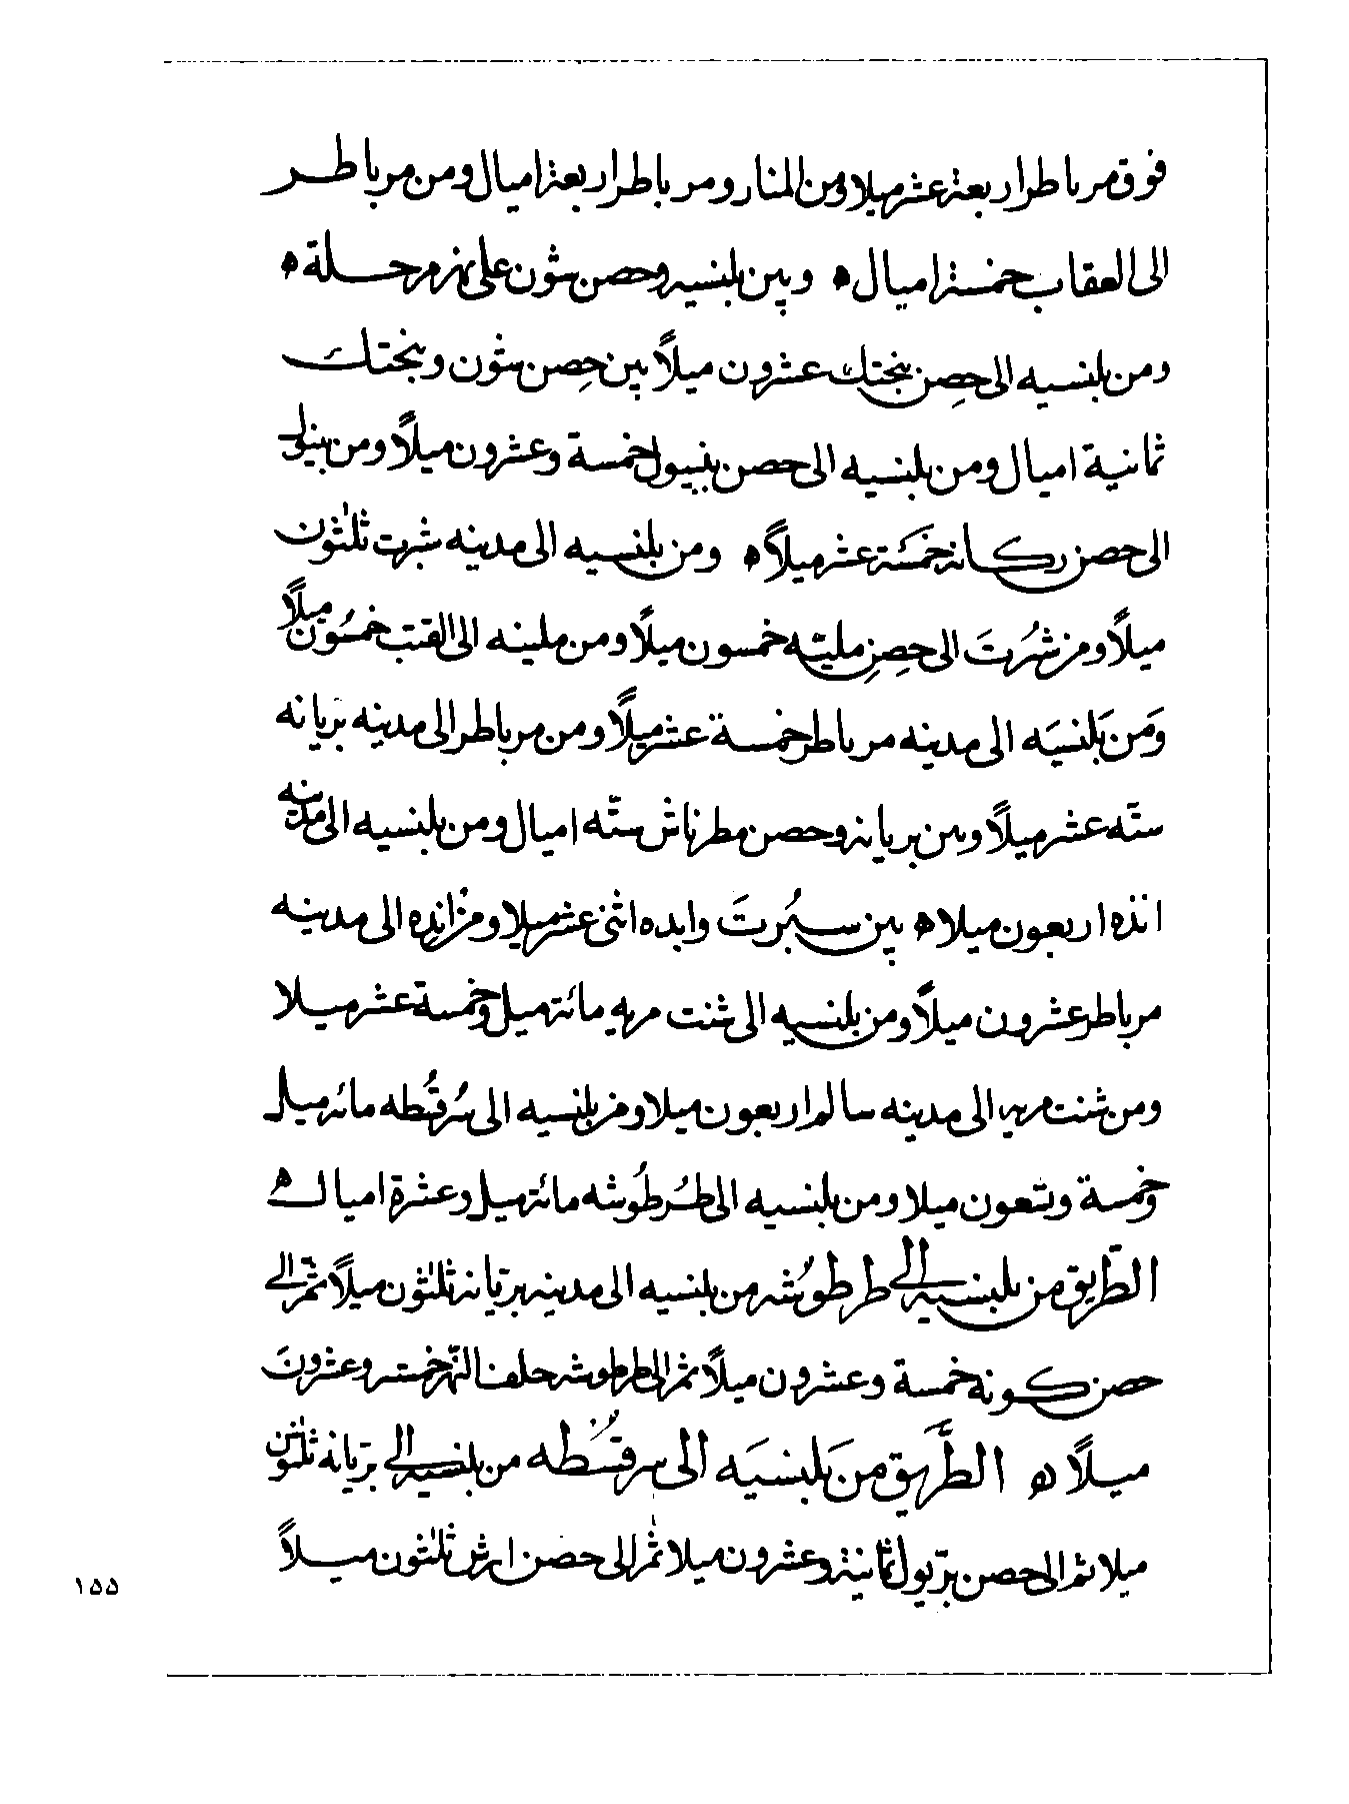 فوق مرباطر اربعة عشر ميلا ومن المنار ومرباطر اربعة اميال ومن مرباطر
الى العقاب خمسة اميال ه وبين بلنسيه وحصن شون على نهر مرحلة ه
ومن بلنسيه الى حصن بنجتك عشرون ميلاً بين حصن شون وبنجتك
ثمانية اميال ومن بلنسيه الى حصن بنيول خمسة وعشرون ميلاً ومن بنيول
الى حصن ركانه خمسة عشر ميلاً ه ومن بلنسيه الى مدينه شبرت ثلثون
ميلاً ومن شبرت الى حصن ملينه خمسون ميلاً ومن ملينه الى القنت خمسون ميلاً
ومن بلنسيه الى مدينه مرباطر خمسة عشر ميلاً ومن مرباطر الى مدينه بريانه
ستّه عشر ميلاً وبين بريانه وحصن مطرناش ستّه اميال ومن بلنسيه الى مدينه
انده اربعون ميلا ه بين سبرت وابده اثنى عشر ميلا ومن انده الى مدينه
مرباطر عشرون ميلاً ومن بلنسيه الى شنت مريه مائة ميل وخمسة عشر ميلا
ومن شنت مريه الى مدينه سالم اربعون ميلا ومن بلنسيه الى سرقسطه مائه ميل
وخمسة وتسعون ميلا ومن بلنسيه الى طرطوشه مائة ميل وعشرة اميال ه
الطّريق من بلنسيه الى طرطوشه من بلنسيه الى مدينه بريانه ثلثون ميلاً ثم الى
حصن كونه خمسة وعشرون ميلاً ثم الى طرطوشه خلف النّهر خمسه وعشرون
ميلاً ه الطَّريق من بَلنسيَه الى سرقسطه من بلنسيه الى بريانه ثلثون
ميلا ثم الى حصن بريول ثمانية وعشرون ميلا ثم الى حصن ارش ثلثون ميلاً
١٥٥